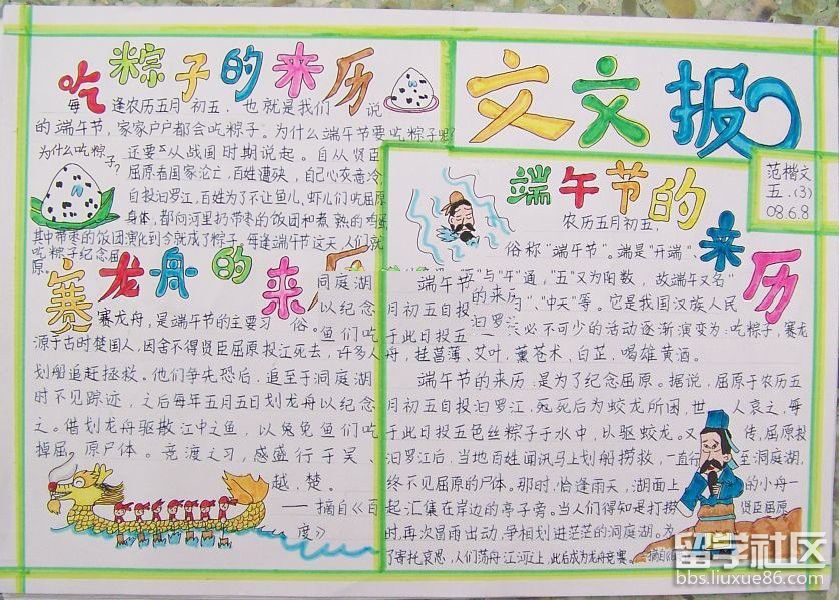 吃粽子的来历
每逢农历五月初五,也就是我们说
的端午节,家家户户都会吃粽子。为什么端午节要吃粽子呢?
为什么吃粽子?
还要从战国时期说起。自从贤臣
屈原看国家沦亡,百姓遭殃,自己心灰意冷,
自投汨罗江,百姓为了不让鱼儿,虾儿们吃屈原
身体,都向河里扔带枣的饭团和煮熟的鸡蛋
其中带枣的饭团演化到今就成了粽子,每逢端午节这天,人们就
吃粽子纪念屈
原。
赛龙舟的来
赛龙舟,是端午节的主要习俗。
源于古时楚国人,因舍不得贤臣屈原投江死去,许多人
划船追赶拯救。他们争先恐后,追至于洞庭湖
时不见踪迹,之后每年五月五日划龙舟以纪念
之。借划龙舟驱散江中之鱼,以免鱼们吃
掉屈原尸体。竞渡之习,盛行于吴、
越、楚。
——摘自《百
度》
洞庭湖
以纪念
鱼们吃
文文报
范楷文
五.(3)
08.6.8
端午节的来历
农历五月初五,
俗称“端午节”。端是“开端”、
与“午”通,“五”又为阳数,故端午又名“
的来历
”、“中天”等。它是我国汉族人民
汨罗
必不可少的活动逐渐演变为:吃粽子,赛龙
端午节
月初五自投
于此日投五
舟,挂菖蒲、艾叶,薰苍术、白芷,喝雄黄酒。
端午节的来历:是为了纪念屈原。据说,屈原于农历五
月初五自投汨罗江,死后为蛟龙所困,世人哀之,每
于此日投五色丝粽子于水中,以驱蛟龙。又传,屈原投
汨罗江后,当地百姓闻讯马上划船捞救,一直行至洞庭湖,
终不见屈原的尸体。那时,恰逢雨天,湖面上的小舟一
起汇集在岸边的亭子旁。当人们得知是打捞贤臣屈原
时,再次冒雨出动,争相划进茫茫的洞庭湖。为
了寄托哀思,人们荡舟江河之上,此后成为龙舟竞赛。
留学社区
bbs.liuxue86.com